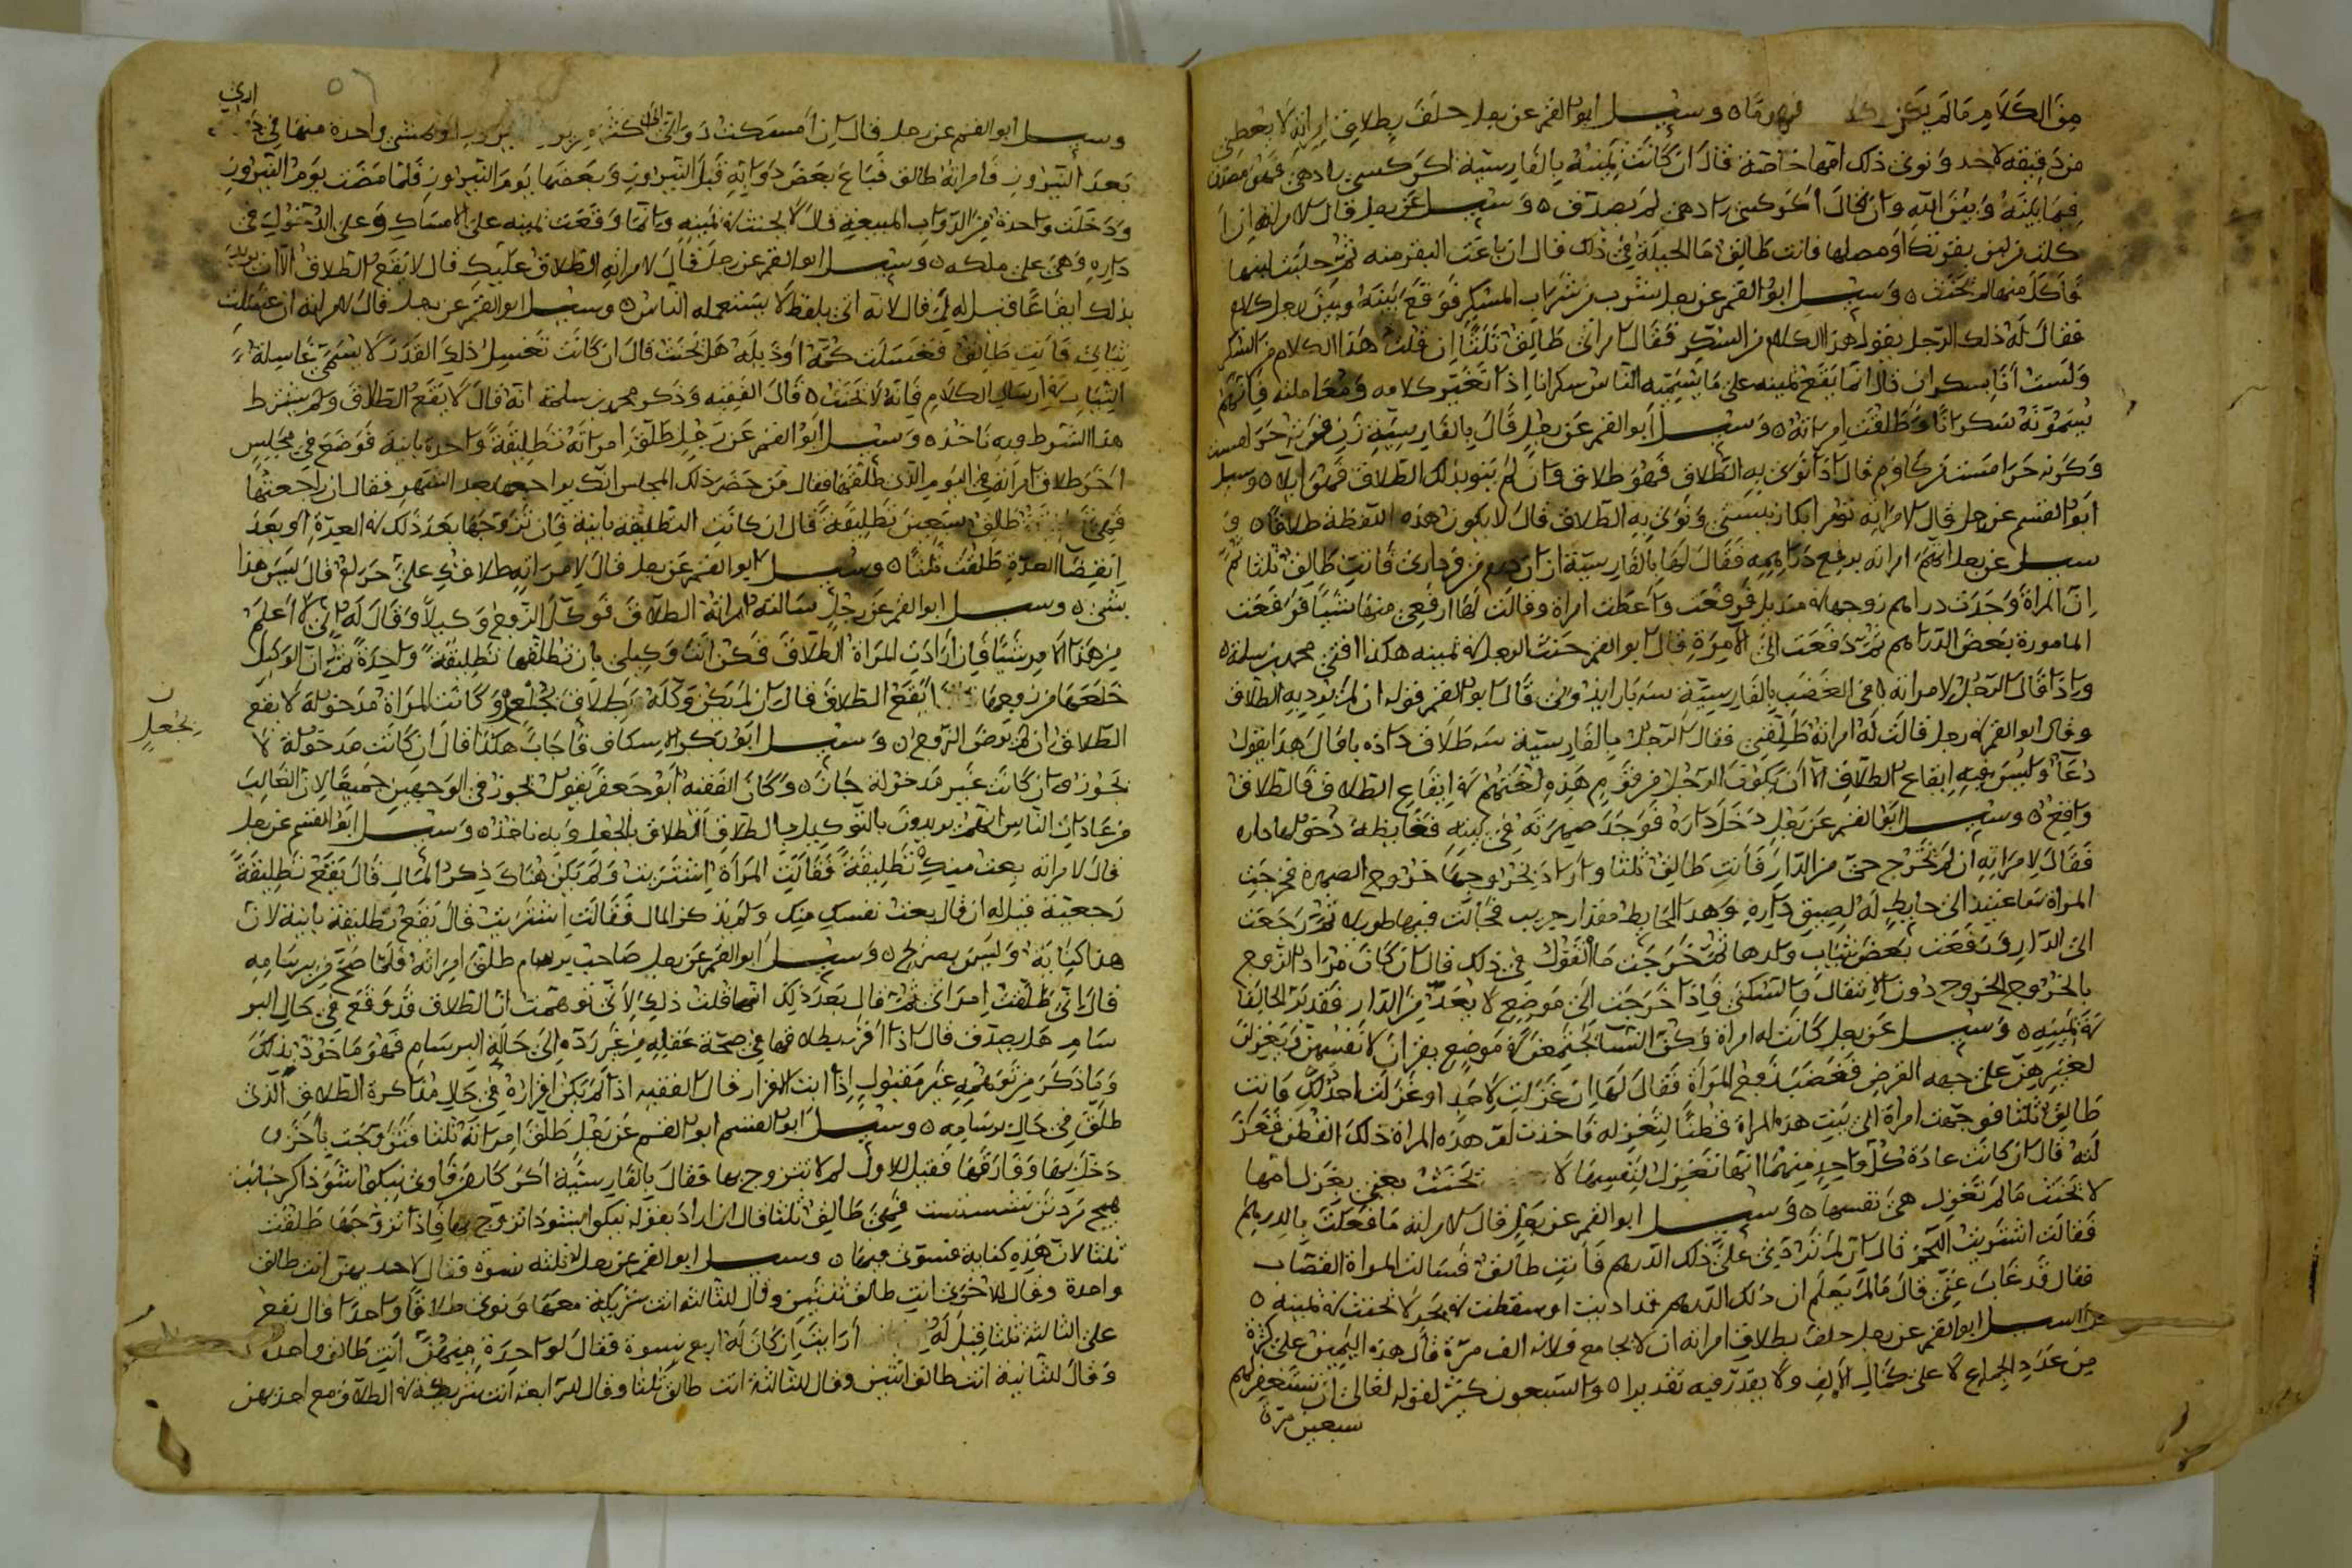 من الكلام ما لم يكن فهو ما ٥ وسيل ابو القسم عن رجل حلف بطلاق امراته لا يعطي
من دقيقه لاحد ونوى ذلك امها خاصة قال ان كانت يمينه بالفارسية اكر كسي را دهي فهو مصدق
فيما بينه وبين الله وان قال اكر كسى را دهى لم يصدق ٥ وسيل عن رجل قال لامراته ان
كلت من لبن بقرتك او مصلها فانت طالق ما الحيلة في ذلك قال ان باعت البقر منه ثم حلبت لبنها
فاكل منها لم يحنث ٥ وسيل ابو القسم عن رجل شرب من شراب المسكر فوقع بينه وبين رجل كلام
فقال له ذلك الرجل يقول هذا الكلام من السكر فقال امراتى طالق ثلثا ان قلت هذا الكلام من السكر
ولست انا بسكران قال انما يقع يمينه على ما يسميه الناس سكرانا اذا تغير كلامه ومعاملته فانهم
يسمونه سكرانا وطلقت امراته ٥ وسيل ابو القسم عن رجل قال بالفارسية زن من بر من حرامست
وكر نه حرامست قال اذا نوى به الطلاق فهو طلاق وان لم ينو بذلك الطلاق فهو ايلا ٥ وسيل
ابو القسم عن رجل قال لامراته ونوى به الطلاق قال لا يكون هذه اللفظة طلاقا ٥ و
سيل عن رجل اتهم امراته برفع دراهمه فقال لها بالفارسية فانت طالق ثلثا ثم
ان المراة وجدت دراهم زوجها في منديل فرفعت واعطت امراة وقالت لها ارفعي منها شيئا فرفعت
المامورة بعض الدراهم ثم دفعت الى الامرة قال ابو القسم حنث الرجل في يمينه هكذا افتى محمد بن سلمة ٥
واذا قال الرجل لامراته في الغضب بالفارسية قال ابو القسم قوله ان لم يرد به الطلاق
وقال ابو القسم في رجل قالت له امراته طلقني فقال الرجل بالفارسية سه طلاق داده باد قال هذا يقول
دعا وليس فيه ايقاع الطلاق الا ان يكون الرجل من قوم هذه لغتهم في ايقاع الطلاق فالطلاق
واقع ٥ وسيل ابو القسم عن رجل دخل داره فوجد صهرته في بيته فغايظه دخولها داره
فقال لامراته ان لم تخرج من الدار فانت طالق ثلثا واراد بخروجها خروج الصهرة فخرجت
المراة الى حايط له لصيق داره وهذا الحايط مقدار جريب فجالت فيها طويلا ثم رجعت
الى الدار ورفعت بعض ثياب ولدها ثم خرجت ما القول في ذلك قال ان كان مراد الزوج
بالخروج الخروج دون الانتقال والسكنى فاذا خرجت الى موضع لا يعد من الدار فقد بر الحالف
في يمينه ٥ وسيل عن رجل كانت له امراة وكن النسا يجتمعن في موضع يغزلن لانفسهن ويغزلن
لغيرهن على جهه القرض فغضب زوج المراة فقال لها ان غزلت لاحد او غزلت احد لك فانت
طالق ثلثا فوجهت امراة الى بيت هذه المراة قطنا لتغزله فاخذت ام هذه المراة ذلك القطن فغزلت
لنه قال ان كانت عادة كل واحد منهما انها تغزل لنفسها لا تحنث يعني بغزل امها
لا تحنث ما لم تغزل هي نفسها ٥ وسيل ابو القسم عن رجل قال لامراته ما فعلت بالدرهم
فقالت اشتريت اللحم قال ان لم تردي علي ذلك الدرهم فانت طالق فسالت المراة القصاب
فقال قد غاب عني قال ما لم يعلم ان ذلك الدرهم قد اذيب او سقطت في بحر لا تحنث في يمينه ٥
سيل ابو القسم عن رجل حلف بطلاق امراته ان لا يجامع فلانه الف مرة قال هذه اليمين على كثرة
من عدد الجماع لا على كمال الالف ولا يقدر فيه تقديرا ٥ والسبعون كثير لقوله تعالى ان تستغفر لهم
سبعين مرة
٥٦
وسيل ابو القسم عن رجل قال ان امسكت دوابي او تمشي واحدة منها في
بعد النيروز فامراته طالق فباع بعض دوابه قبل النيروز وبعضها يوم النيروز فلما مضت يوم النيروز
ودخلت واحدة من الدواب المبيعة قال لا يحنث في يمينه وانما وقعت يمينه على الامساك وعلى الدخول في
داره وهي على ملكه ٥ وسيل ابو القسم عن رجل قال لامراته الطلاق عليك قال لا يقع الطلاق الا ان يريد
بذلك ايقاعا فقيل له لم قال لانه اتى بلفظ لا يستعمله الناس ٥ وسيل ابو القسم عن رجل قال لامراته ان غسلت
ثيابي فانت طالق فغسلت كمه او ذيله هل تحنث قال ان كانت تغسل ذلك القدر لا يسمى غاسلة
الثياب في ارسال الكلام فانه لا تحنث ٥ قال الفقيه وذكر محمد بن سلمة انه قال لا يقع الطلاق ولم يشترط
هذا الشرط وبه ناخذ ٥ وسيل ابو القسم عن رجل طلق امراته تطليقة واحدة باينة فوضع في مجلس
اخر طلاق امراته في اليوم الذي طلقها فقال من حضر ذلك المجلس انك يراجعها بعد الشهر فقال ان راجعتها
فهي طالق سبعين تطليقة قال ان كانت التطليقه باينة فان تزوجها بعد ذلك في العدة او بعد
انقضا العدة طلقت ثلثا ٥ وسيل ابو القسم عن رجل قال لامراته طلاقك على حرام قال ليس هذا
بشي ٥ وسيل ابو القسم عن رجل سالته امراته الطلاق فوكل الزوج وكيلا وقال له اني لا اعلم
من هذا الامر شيئا فان ارادت المراة الطلاق فكن انت وكيلي بان تطلقها تطليقة واحدة ثم ان الوكيل
خلعها من زوجها ايقع الطلاق قال ان لم يكن وكله بطلاق بجعل وكانت المراة مدخولة لا يقع
الطلاق ان لم يرض الزوج ٥ وسيل ابو بكر الاسكاف فاجاب هكذا قال ان كانت مدخولة لا
يجوز وان كانت غير مدخولة جاز ٥ وكان الفقيه ابو جعفر يقول يجوز في الوجهين جميعا لان الغالب
من عادات الناس انهم يريدون بالتوكيل بالطلاق الطلاق بالجعل وبه ناخذ ٥ وسيل ابو القسم عن رجل
قال لامراته بعت منك تطليقة فقالت المراة اشتريت ولم يكن هناك ذكر المال قال يقع تطليقة
رجعية فقيل له ان قال بعت نفسك منك ولم يذكر المال فقالت اشتريت قال يقع تطليقة باينة لان
هذا كناية وليس بصريح ٥ وسيل ابو القسم عن رجل صاحب برسام طلق امراته فلما صح من برسامه
قال اني طلقت امراتى ثم قال بعد ذلك انما قلت ذلك لاني توهمت ان الطلاق قد وقع في حال البر
سام هل يصدق قال اذا اقر بطلاقها في صحة عقله من غير رده الى حالة البرسام فهو ماخوذ بذلك
وما ذكر من توهمه غير مقبول اذا ابت الاقرار قال الفقيه اذا لم يكن اقراره في حال مذاكرة الطلاق الذي
طلق في حال برسامه ٥ وسيل ابو القسم عن رجل طلق امراته ثلثا فتزوجت باخر
دخل بها وفارقها فقيل للاول لم لا تتزوج بها فقال بالفارسية
فهي طالق ثلثا قال ان اراد بقوله تزوج بها فاذا تزوجها طلقت
ثلثا لان هذه كناية ٥ وسيل ابو القسم عن رجل له ثلثه نسوة فقال لاحديهن انت طالق
واحدة وقال للاخرى انت طالق ثنتين وقال للثالثة انت شريكة معهما ونوى طلاقا واحدا قال يقع
على الثالثة ثلثا قيل له ارايت ان كان له اربع نسوة فقال لواحدة منهن انت طالق واحدة
وقال للثانية انت طالق اثنتين وقال للثالثة انت طالق ثلثا وقال للرابعة انت شريكة في الطلاق مع احديهن
بجعل